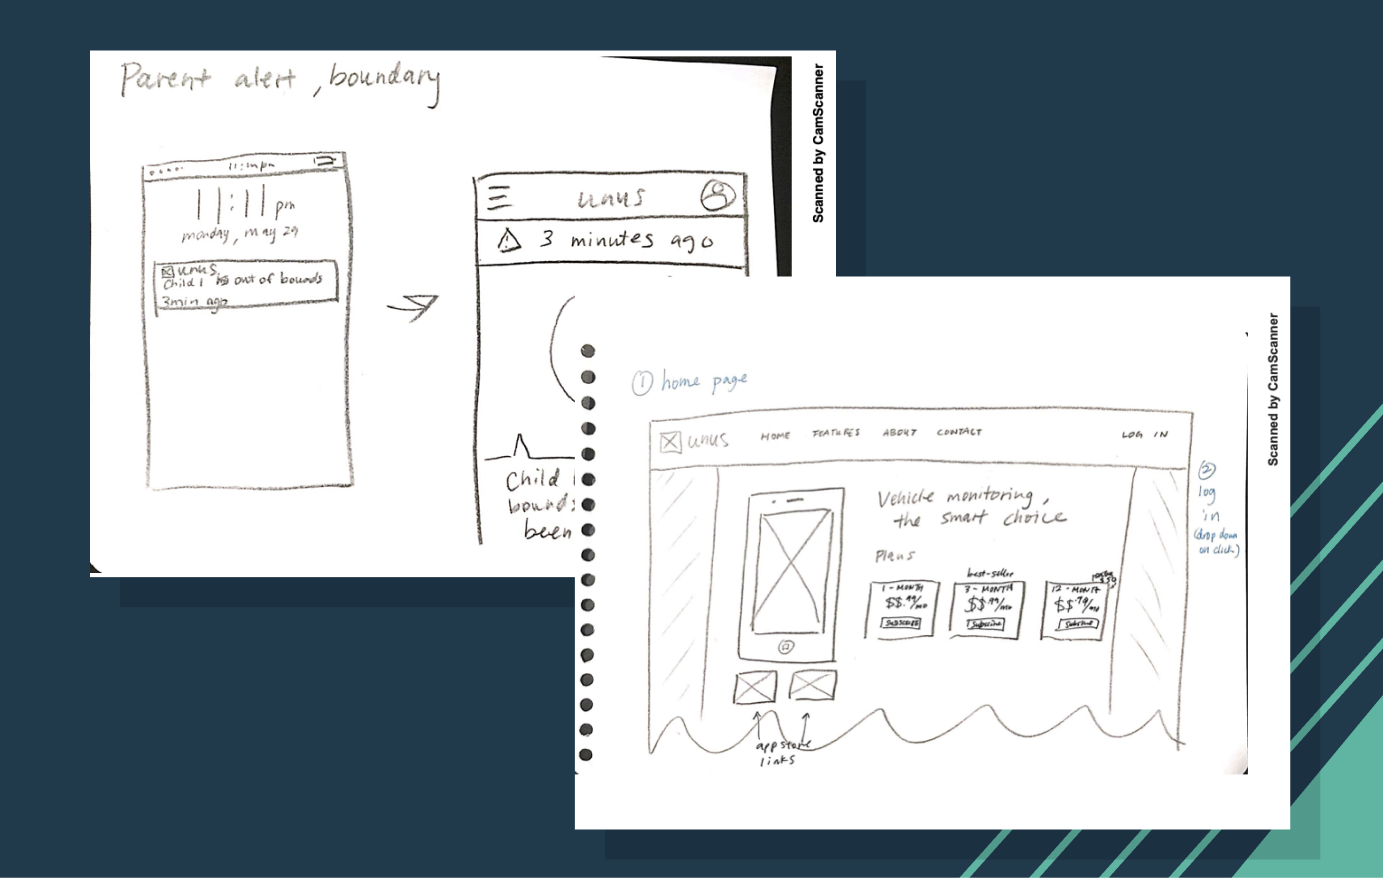 Parent alert, boundary
11:11pm
11:11 pm
monday, may 29
unus
Child 1 is out of bounds
3min ago
unus
3 minutes ago
Child
bounds
been
Scanned by CamScanner
1 home page
unus HOME FEATURES ABOUT CONTACT LOG IN
2
log
in
(drop down
on click)
Vehicle monitoring,
the smart choice
Plans
best-seller
1-MONTH
$$.99/mo
SUBSCRIBE
3-MONTH
$$.99/mo
Subscribe
12-MONTH
$$.79/mo
Subscribe
app store
links
Scanned by CamScanner